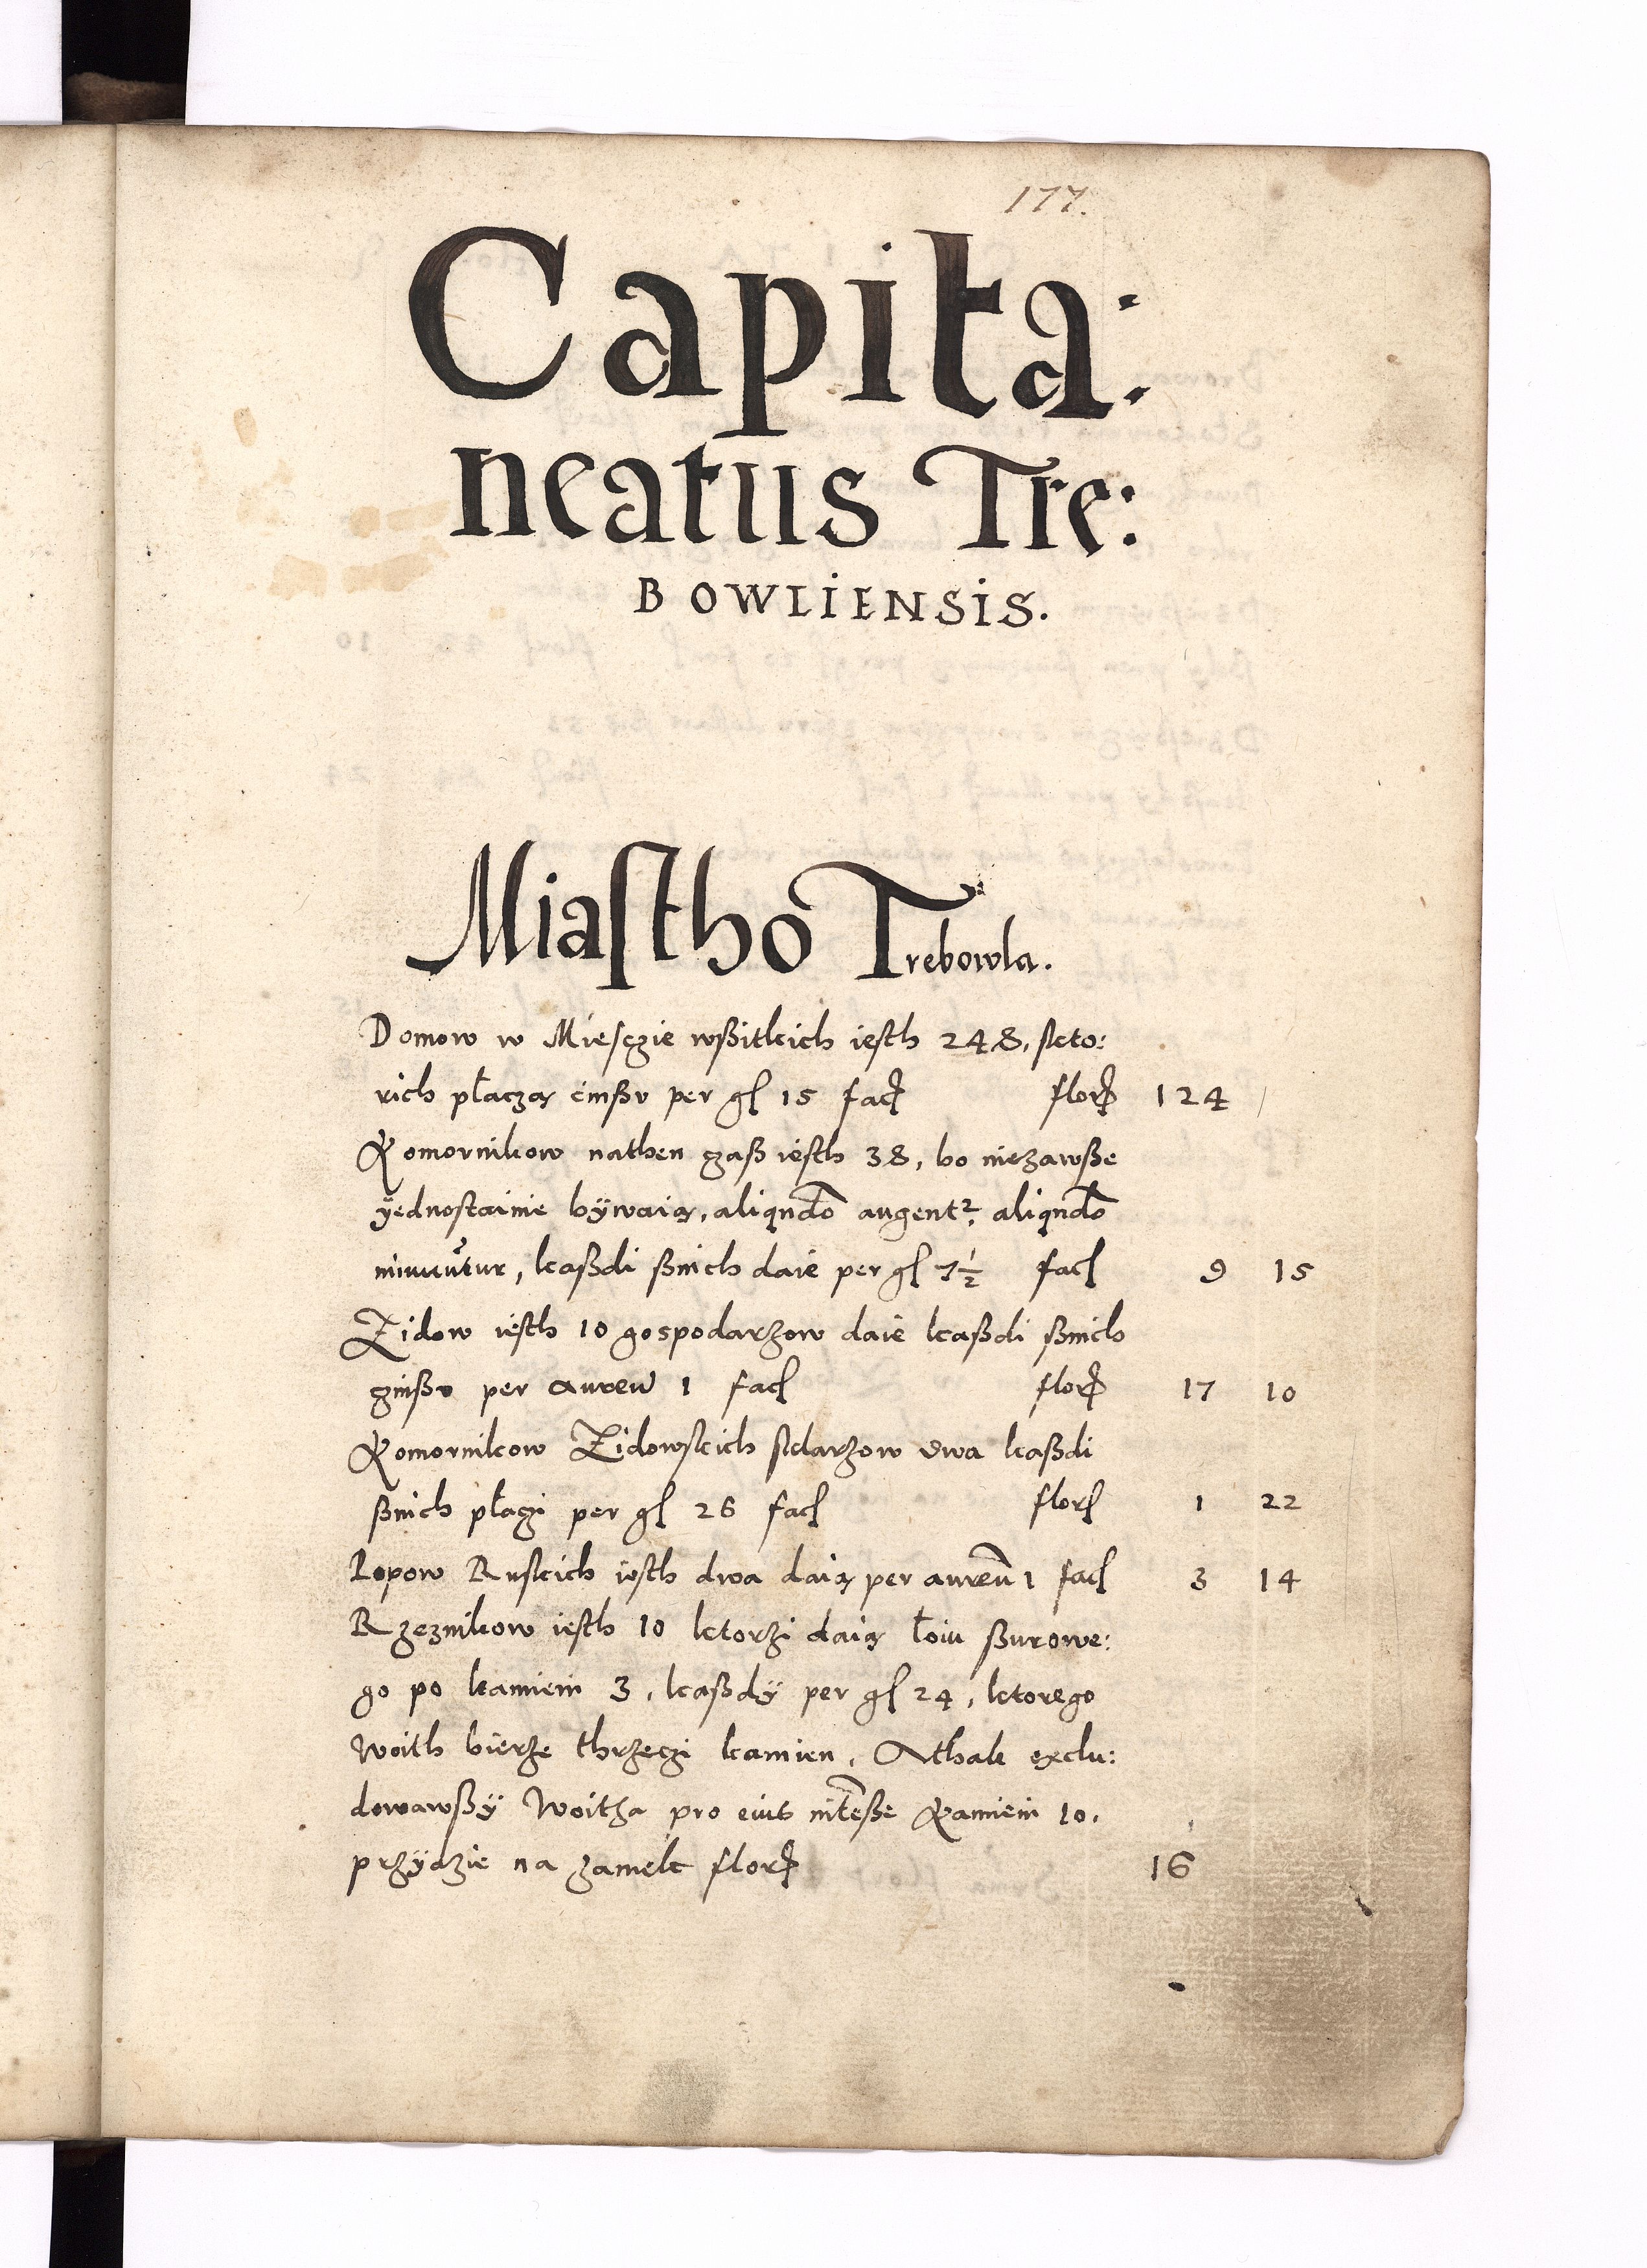 177.
Capita:
neatus Tre:
BOWLIENSIS.
Miastho Trebowla.
Domow w Miesczie wßitkich iesth 248, skto:
rich płaczą cinßv per gl 15 fac flor 124
Komornikow nathen czaß iesth 38, bo niezawße
ÿednostainie bÿwaią, aliqndo augentr aliqndo
minuutur, kaßdi ßnich daie per gl 7½ fac 9 15
Zidow iesth 10 gospodarzow daie kaßdi ßnich
czinßv per aureu 1 fac flor 17 10
Komornikow Zidowskich skdarzow dwa kaßdi
ßnich płaczi per gl 26 fac flor 1 22
Popow Ruskich iesth dwa daią per aureu 1 fac 3 14
Rzeznikow iesth 10 ktorzi daią łoiu ßurowe:
go po kamieni 3, kaßdÿ per gl 24, ktorego
Woith bierze thrzeczi kamien, Athak exclu:
dowawßÿ Woitha pro eius inteße Kamieni 10.
przÿdzie na zamek flor 16